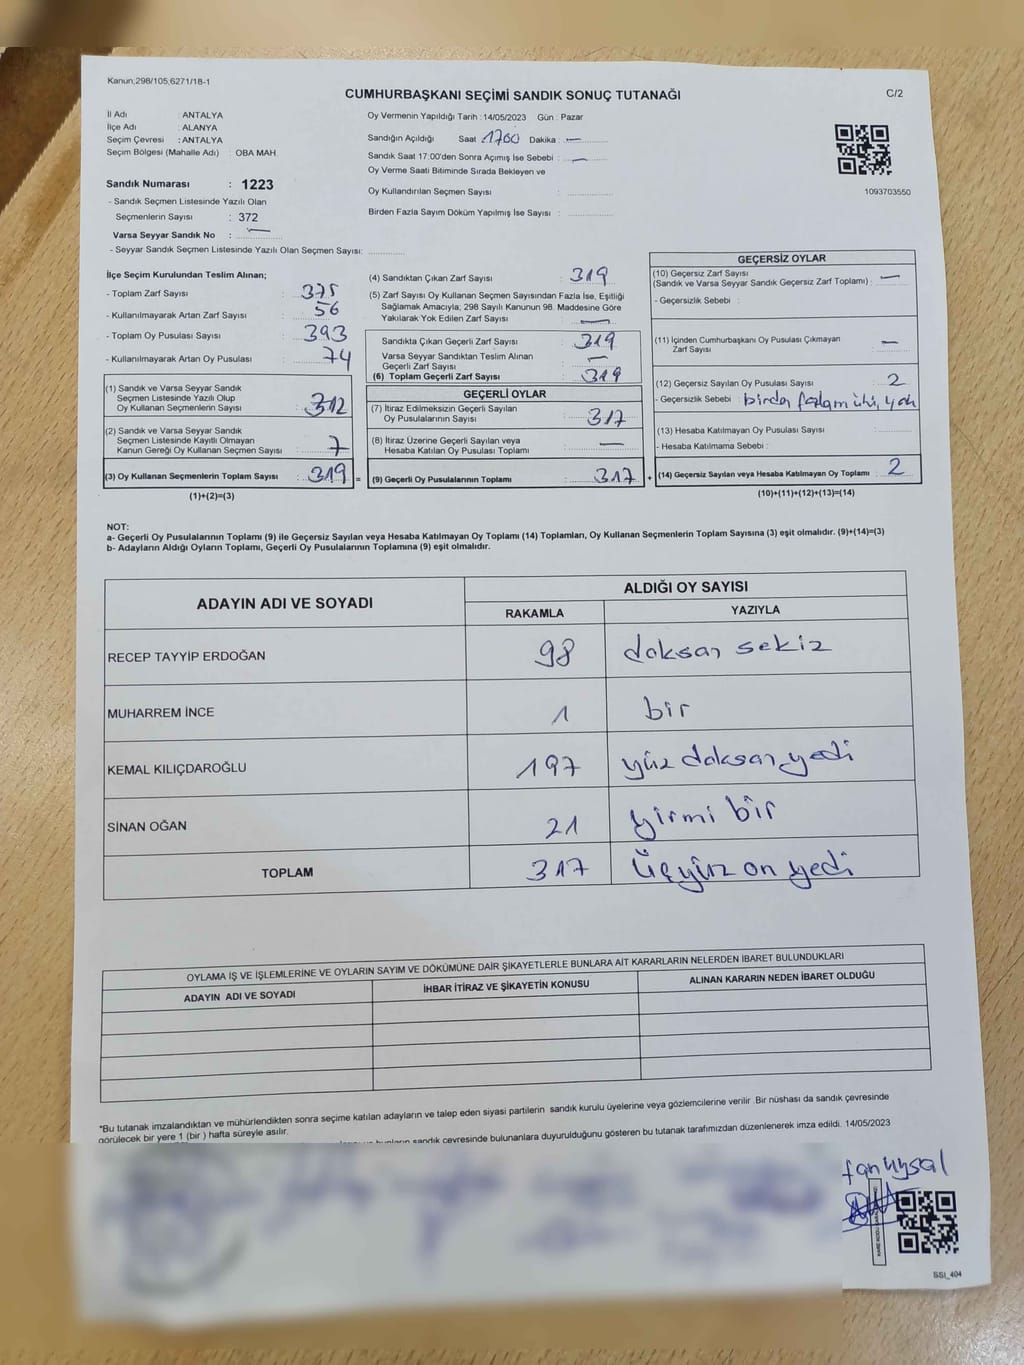 Kanun,298/105,6271/18-1
CUMHURBAŞKANI SEÇİMİ SANDIK SONUÇ TUTANAĞI
C/2
İl Adı : ANTALYA
İlçe Adı : ALANYA
Seçim Çevresi : ANTALYA
Seçim Bölgesi (Mahalle Adı) : OBA MAH.
Sandık Numarası : 1223
- Sandık Seçmen Listesinde Yazılı Olan
Seçmenlerin Sayısı : 372
Varsa Seyyar Sandık No : —
- Seyyar Sandık Seçmen Listesinde Yazılı Olan Seçmen Sayısı:
Oy Vermenin Yapıldığı Tarih : 14/05/2023 Gün : Pazar
Sandığın Açıldığı Saat 1700 Dakika : —
Sandık Saat 17:00'den Sonra Açımış İse Sebebi : —
Oy Verme Saati Bitiminde Sırada Bekleyen ve
Oy Kullandırılan Seçmen Sayısı :
Birden Fazla Sayım Döküm Yapılmış İse Sayısı :
1093703550
İlçe Seçim Kurulundan Teslim Alınan;
- Toplam Zarf Sayısı : 375
- Kullanılmayarak Artan Zarf Sayısı : 56
- Toplam Oy Pusulası Sayısı : 393
- Kullanılmayarak Artan Oy Pusulası : 74
(1) Sandık ve Varsa Seyyar Sandık
Seçmen Listesinde Yazılı Olup
Oy Kullanan Seçmenlerin Sayısı : 312
(2) Sandık ve Varsa Seyyar Sandık
Seçmen Listesinde Kayıtlı Olmayan
Kanun Gereği Oy Kullanan Seçmen Sayısı : 7
(3) Oy Kullanan Seçmenlerin Toplam Sayısı : 319 =
(1)+(2)=(3)
(4) Sandıktan Çıkan Zarf Sayısı : 319
(5) Zarf Sayısı Oy Kullanan Seçmen Sayısından Fazla İse, Eşitliği
Sağlamak Amacıyla; 298 Sayılı Kanunun 98. Maddesine Göre
Yakılarak Yok Edilen Zarf Sayısı : —
Sandıkta Çıkan Geçerli Zarf Sayısı : 319
Varsa Seyyar Sandıktan Teslim Alınan
Geçerli Zarf Sayısı : —
(6) Toplam Geçerli Zarf Sayısı : 319
GEÇERLİ OYLAR
(7) İtiraz Edilmeksizin Geçerli Sayılan
Oy Pusulasının Sayısı : 317
(8) İtiraz Üzerine Geçerli Sayılan veya
Hesaba Katılan Oy Pusulası Toplamı : —
(9) Geçerli Oy Pusulalarının Toplamı : 317 +
GEÇERSİZ OYLAR
(10) Geçersiz Zarf Sayısı
(Sandık ve Varsa Seyyar Sandık Geçersiz Zarf Toplamı) : —
- Geçersizlik Sebebi :
(11) İçinden Cumhurbaşkanı Oy Pusulası Çıkmayan
Zarf Sayısı : —
(12) Geçersiz Sayılan Oy Pusulası Sayısı : 2
- Geçersizlik Sebebi :
(13) Hesaba Katılmayan Oy Pusulası Sayısı :
- Hesaba Katılmama Sebebi :
(14) Geçersiz Sayılan veya Hesaba Katılmayan Oy Toplamı : 2
(10)+(11)+(12)+(13)=(14)
NOT:
a- Geçerli Oy Pusulalarının Toplamı (9) ile Geçersiz Sayılan veya Hesaba Katılmayan Oy Toplamı (14) Toplamları, Oy Kullanan Seçmenlerin Toplam Sayısına (3) eşit olmalıdır. (9)+(14)=(3)
b- Adayların Aldığı Oyların Toplamı, Geçerli Oy Pusulalarının Toplamına (9) eşit olmalıdır.
ADAYIN ADI VE SOYADI
ALDIĞI OY SAYISI
RAKAMLA YAZIYLA
RECEP TAYYİP ERDOĞAN 98 doksan sekiz
MUHARREM İNCE 1 bir
KEMAL KILIÇDAROĞLU 197 yüz doksan yedi
SİNAN OĞAN 21 yirmi bir
TOPLAM 317 üçyüz on yedi
OYLAMA İŞ VE İŞLEMLERİNE VE OYLARIN SAYIM VE DÖKÜMÜNE DAİR ŞİKAYETLERLE BUNLARA AİT KARARLARIN NELERDEN İBARET BULUNDUKLARI
ADAYIN ADI VE SOYADI İHBAR İTİRAZ VE ŞİKAYETİN KONUSU ALINAN KARARIN NEDEN İBARET OLDUĞU
*Bu tutanak imzalandıktan ve mühürlendikten sonra seçime katılan adayların ve talep eden siyasi partilerin sandık kurulu üyelerine veya gözlemcilerine verilir .Bir nüshası da sandık çevresinde
görülecek bir yere 1 (bir ) hafta süreyle asılır.
sandık çevresinde bulunanlara duyurulduğunu gösteren bu tutanak tarafımızdan düzenlenerek imza edildi. 14/05/2023
SSI_404